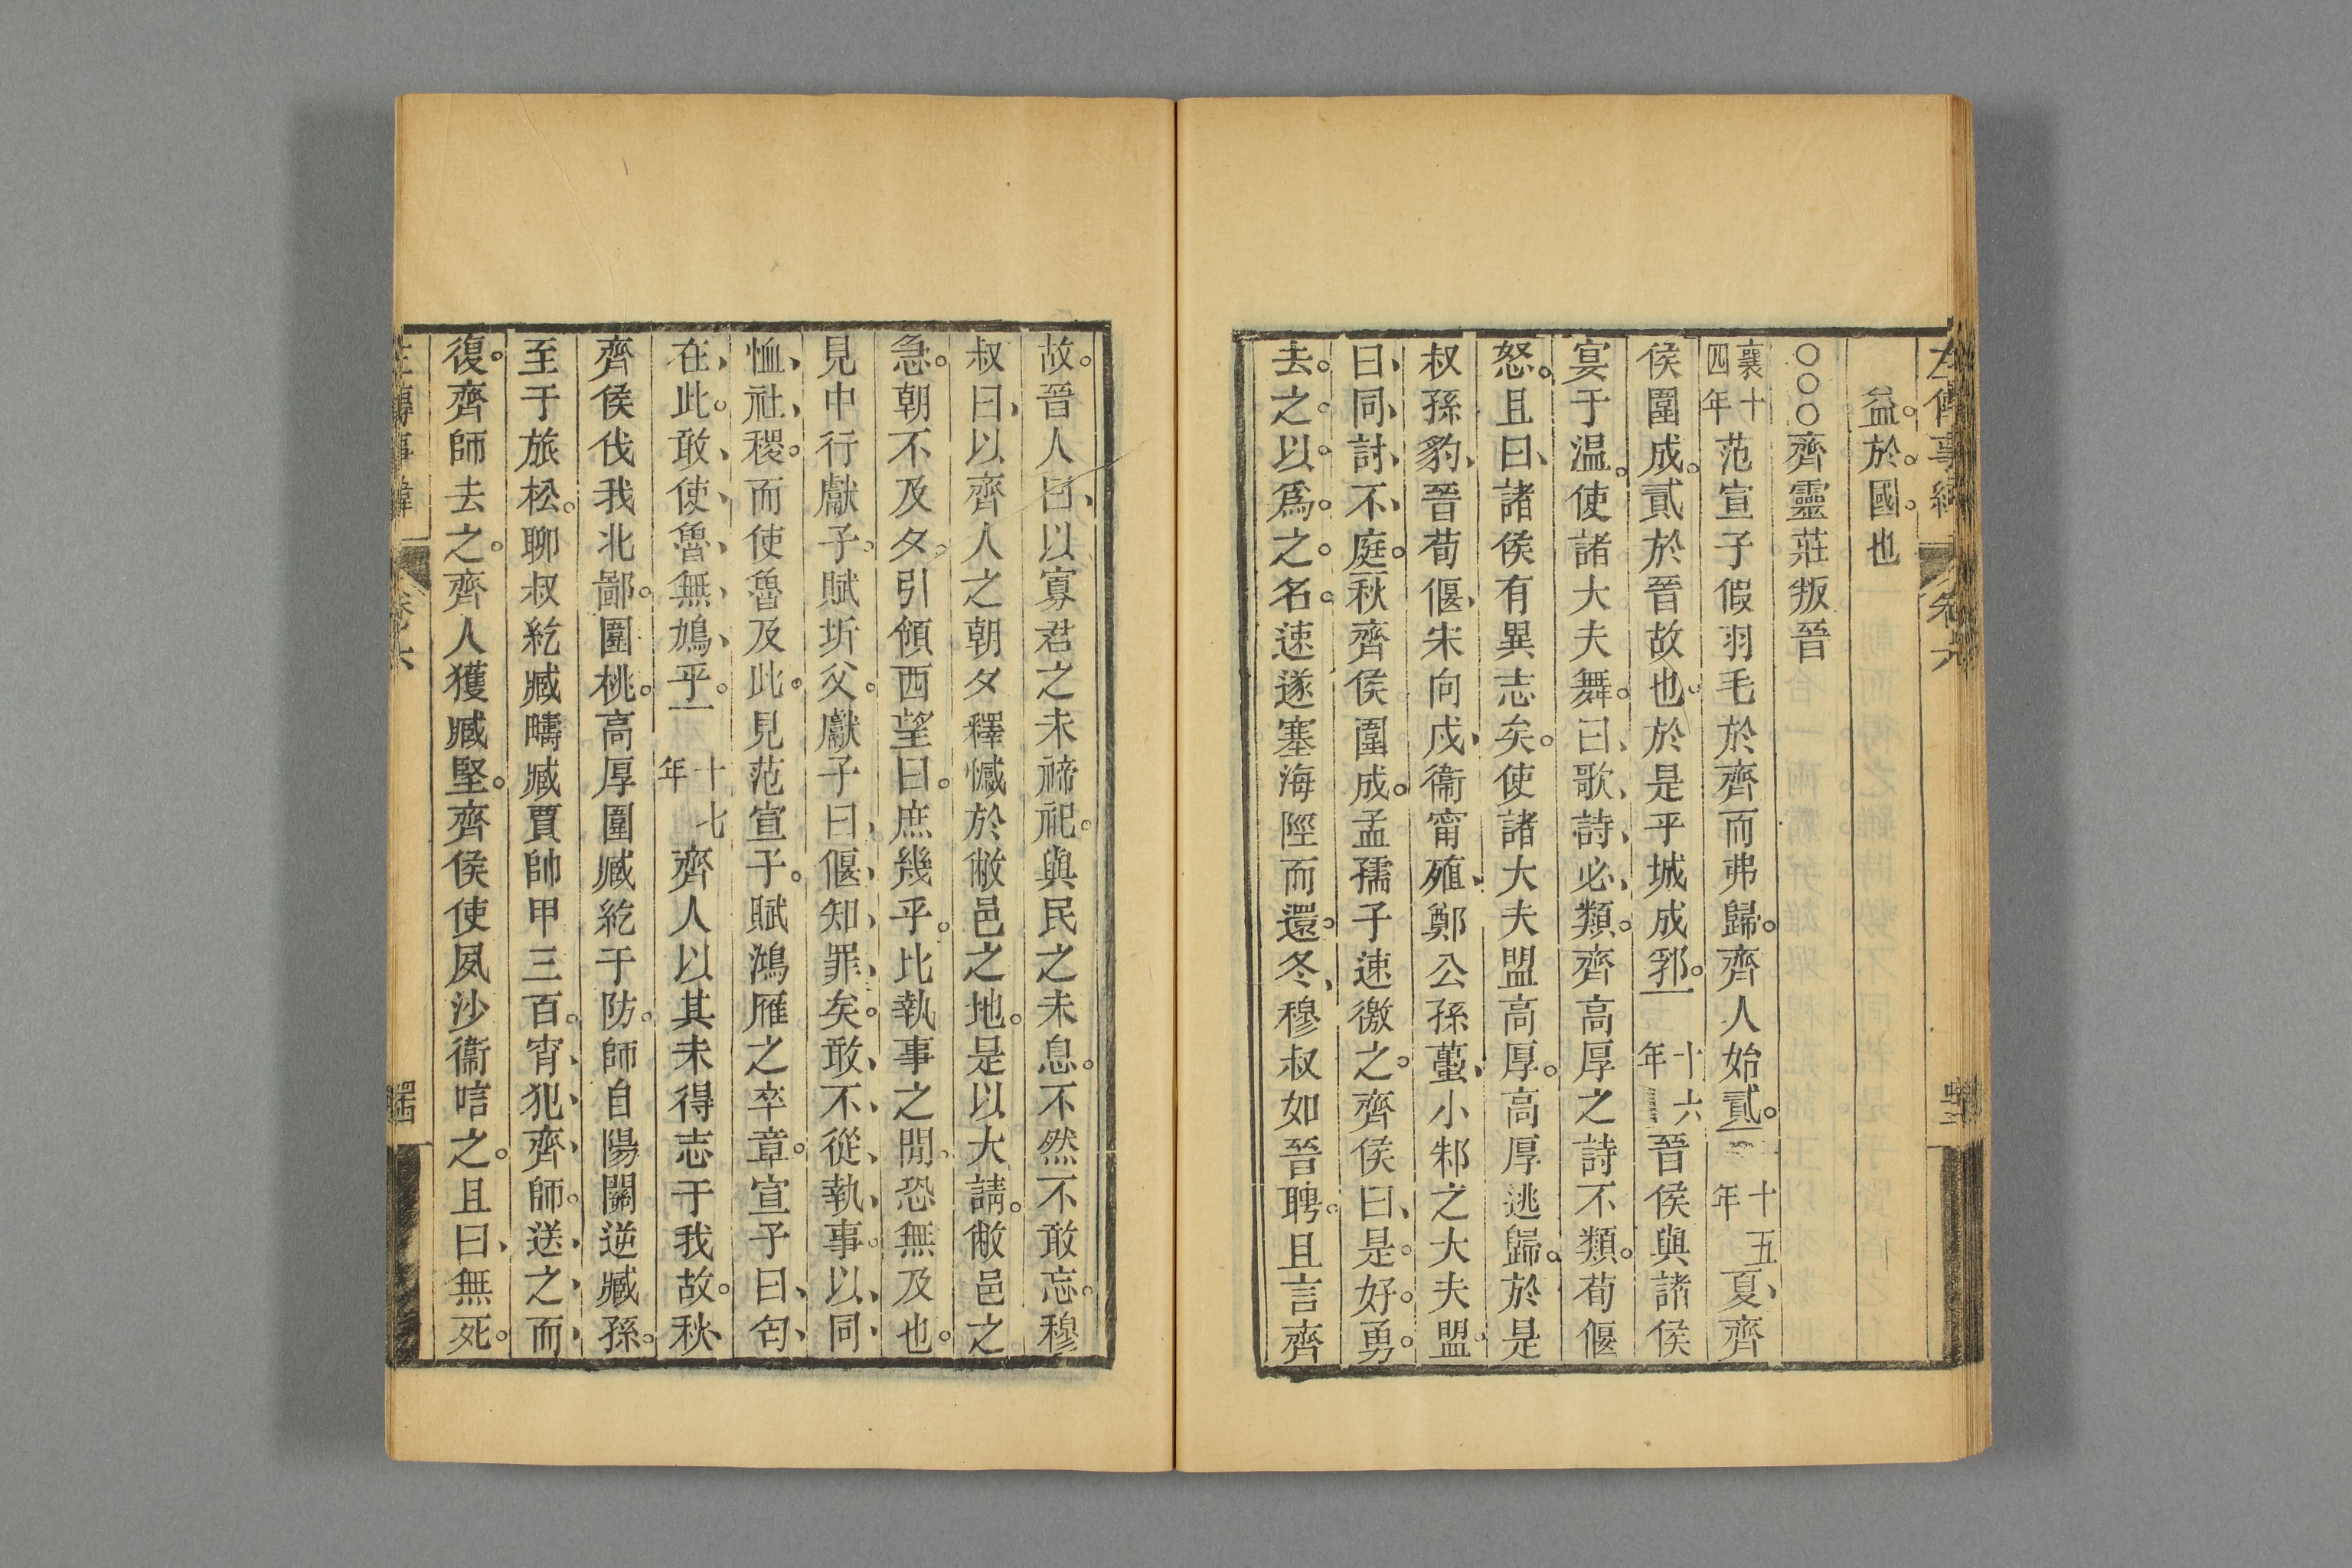 左傳事緯 卷六
益於國也
○○○齊靈莊叛晉
襄十四年范宣子假羽毛於齊而弗歸齊人始貳十五年夏齊
侯圍成貳於晉故也於是乎城成郛十六年晉侯與諸侯
宴于温使諸大夫舞曰歌詩必類齊高厚之詩不類荀偃
怒且曰諸侯有異志矣使諸大夫盟高厚高厚逃歸於是
叔孫豹晉荀偃宋向戌衞甯殖鄭公孫蠆小邾之大夫盟
曰同討不庭秋齊侯圍成孟孺子速徼之齊侯曰是好勇
去之以爲之名速遂塞海陘而還冬穆叔如晉聘且言齊
故晉人曰以寡君之未禘祀與民之未息不然不敢忘穆
叔曰以齊人之朝夕釋憾於敝邑之地是以大請敝邑之
急朝不及夕引領西望曰庶幾乎比執事之閒恐無及也
見中行獻子賦圻父獻子曰偃知罪矣敢不從執事以同
恤社稷而使魯及此見范宣子賦鴻雁之卒章宣子曰匄
在此敢使魯無鳩乎十七年齊人以其未得志于我故秋
齊侯伐我北鄙圍桃高厚圍臧紇于防師自陽關逆臧孫
至于旅松聊叔紇臧疇臧賈帥甲三百宵犯齊師送之而
復齊師去之齊人獲臧堅齊侯使夙沙衞唁之且曰無死
左傳事緯 卷六